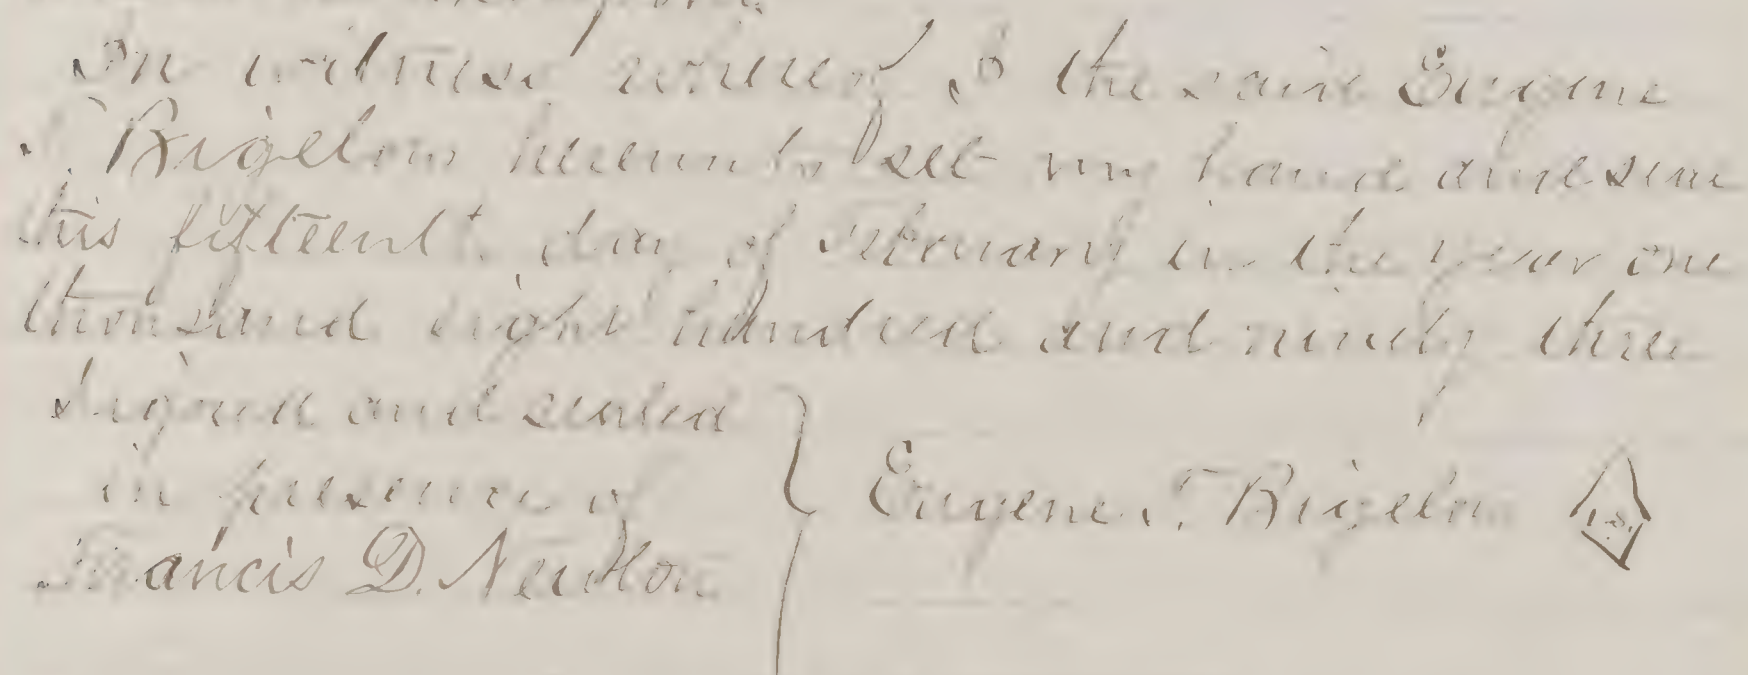 In witness whereof I the said Eugene
T. Bigelow hereunto set my hand and seal
this fifteenth day of February in the year one
thousand eight hundred and ninety three
Signed and sealed
in presence of
Francis D. Newton
Eugene T. Bigelow L.S.